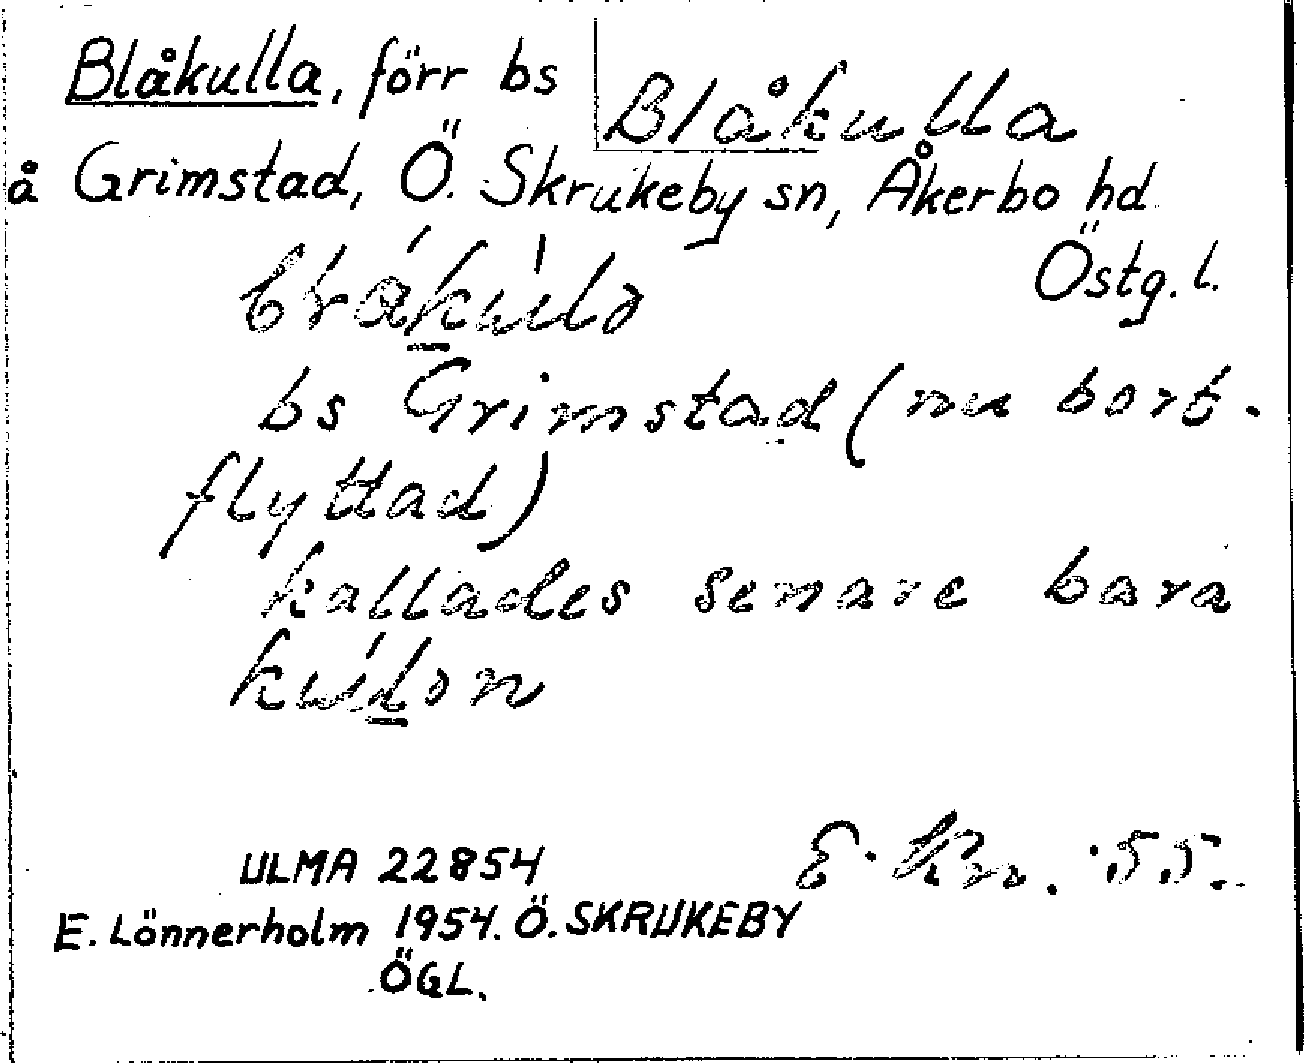 Blåkulla, förr bs
Blåkulla
å Grimstad, Ö. Skrukeby sn, Åkerbo hd
Östg. l.
bs Grimstad (nu bort-
flyttad)
kallades senare bara
ULMA 22854
E. Kn. 55.
E. Lönnerholm 1954. Ö. SKRUKEBY
ÖGL.